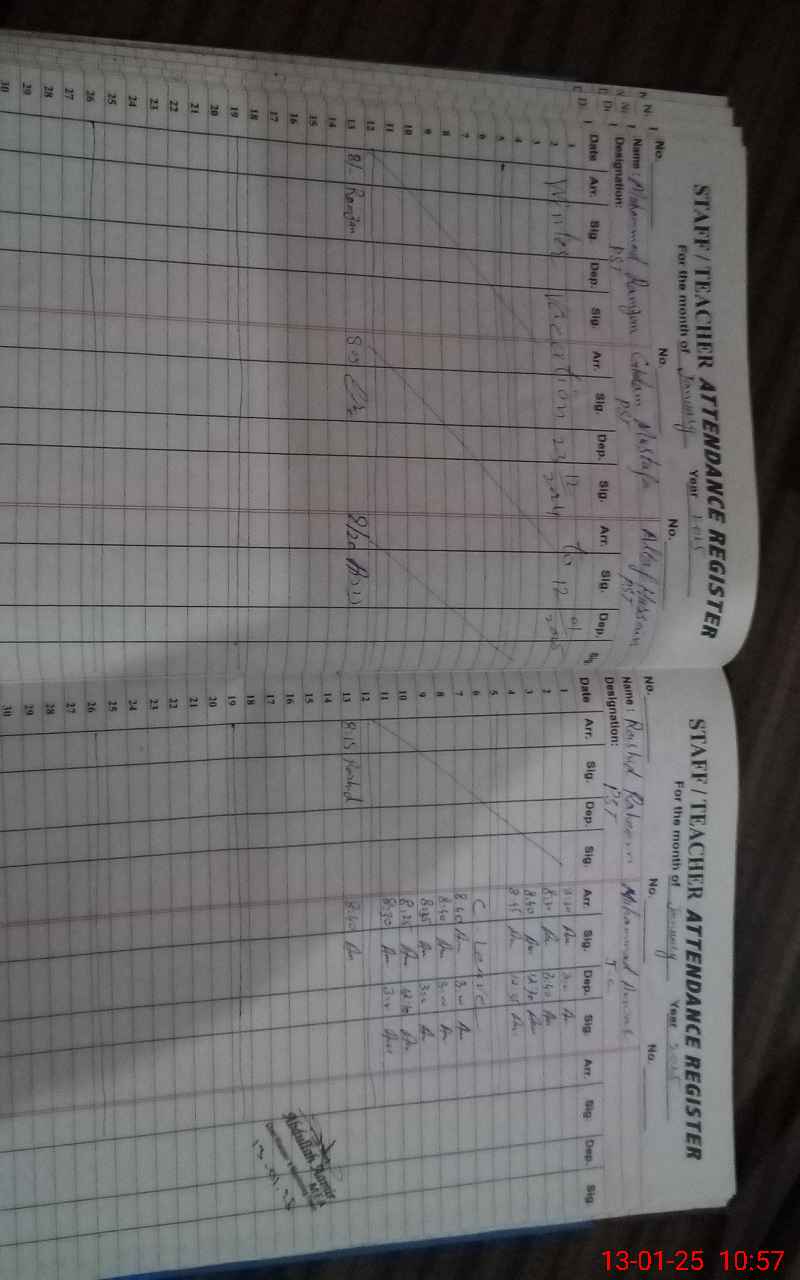 STAFF / TEACHER ATTENDANCE REGISTER
For the month of January Year 2025
No. No. No.
Name : Mohammad Ramzan Ghulam Mustafa Altaf Hussain
Designation: PST PST PST
Date Arr. Sig. Dep. Sig. Arr. Sig. Dep. Sig. Arr. Sig. Dep. Sig.
1
2 Winter Vacation 23 12 2024 to 12 01 2025
3
4
5
6
7
8
9
10
11
12
13 8/- Ramzan 8:0 8/20
14
15
16
17
18
19
20
21
22
23
24
25
26
27
28
29
30
STAFF / TEACHER ATTENDANCE REGISTER
For the month of January Year 2025
No. No. No.
Name : Rashid Raheem Mohammad
Designation: PST
Date Arr. Sig. Dep. Sig. Arr. Sig. Dep. Sig. Arr. Sig. Dep. Sig.
1 8:30
2 8:30 2:40
3 8:40 12/30
4 8:45
5
6 C Leave
7 8:40 3:00
8 8:40 3:00
9 8:35 3:00
10 8:25 12/30
11 8:30 3:00
12
13 8:15 Rashid 8:40
14
15
16
17
18
19
20
21
22
23
24
25
26
27
28
29
30
Abdullah
13-01-25
13-01-25 10:57